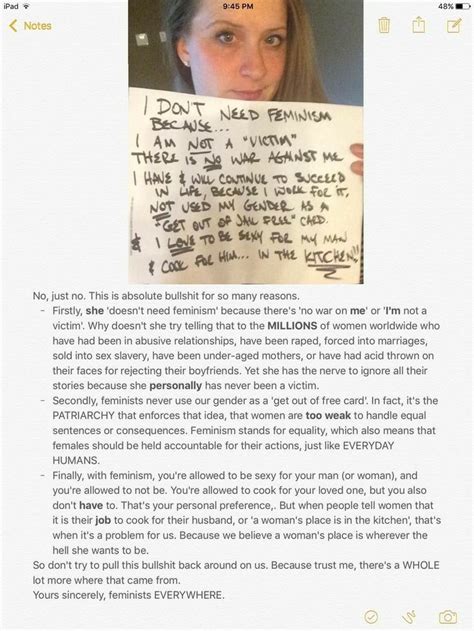 iPad
9:45 PM
48%
Notes
I DON'T NEED FEMINISM
BECAUSE...
I AM NOT A "VICTIM"
THERE IS NO WAR AGAINST ME
I HAVE & WILL CONTINUE TO SUCCEED
IN LIFE, BECAUSE I WORK FOR IT,
NOT USED MY GENDER AS A
"GET OUT OF JAIL FREE" CARD.
& I LOVE TO BE SEXY FOR MY MAN
& COOK FOR HIM... IN THE KITCHEN!!
No, just no. This is absolute bullshit for so many reasons.
- Firstly, she 'doesn't need feminism' because there's 'no war on me' or 'I'm not a
victim'. Why doesn't she try telling that to the MILLIONS of women worldwide who
have had been in abusive relationships, have been raped, forced into marriages,
sold into sex slavery, have been under-aged mothers, or have had acid thrown on
their faces for rejecting their boyfriends. Yet she has the nerve to ignore all their
stories because she personally has never been a victim.
- Secondly, feminists never use our gender as a 'get out of free card'. In fact, it's the
PATRIARCHY that enforces that idea, that women are too weak to handle equal
sentences or consequences. Feminism stands for equality, which also means that
females should be held accountable for their actions, just like EVERYDAY
HUMANS.
- Finally, with feminism, you're allowed to be sexy for your man (or woman), and
you're allowed to not be. You're allowed to cook for your loved one, but you also
don't have to. That's your personal preference,. But when people tell women that
it is their job to cook for their husband, or 'a woman's place is in the kitchen', that's
when it's a problem for us. Because we believe a woman's place is wherever the
hell she wants to be.
So don't try to pull this bullshit back around on us. Because trust me, there's a WHOLE
lot more where that came from.
Yours sincerely, feminists EVERYWHERE.